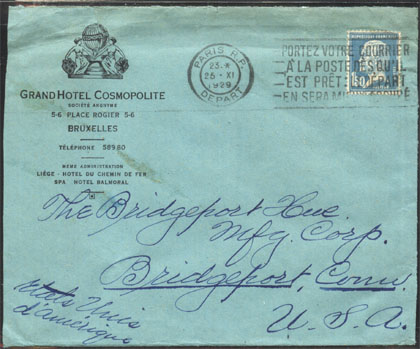 GRAND HOTEL COSMOPOLITE
SOCIÉTÉ ANONYME
5-6 PLACE ROGIER 5-6
BRUXELLES
TÉLÉPHONE 58980
MÊME ADMINISTRATION
LIÉGE - HOTEL DU CHEMIN DE FER
SPA HOTEL BALMORAL
PARIS R.P.
23-*
26-XI
1929
DÉPART
PORTEZ VOTRE COURRIER
A LA POSTE DÈS QU'IL
EST PRÊT: DÉPART
EN SERA
The Bridgeport Hue.
Mfg. Corp.
Bridgeport, Conn.
U.S.A.
Etats Unis
d'amérique